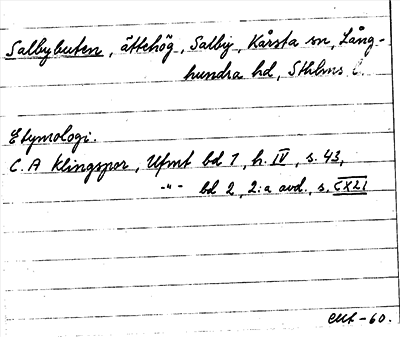 Salbybuten, ättehög, Salby, Kårsta sn, Lång-
hundra hd, Sthlms l.
Etymologi.
C. A Klingspor, Ufmt bd 1, h. IV, s. 43,
-"- bd 2, 2:a avd., s. CXLI
-60.